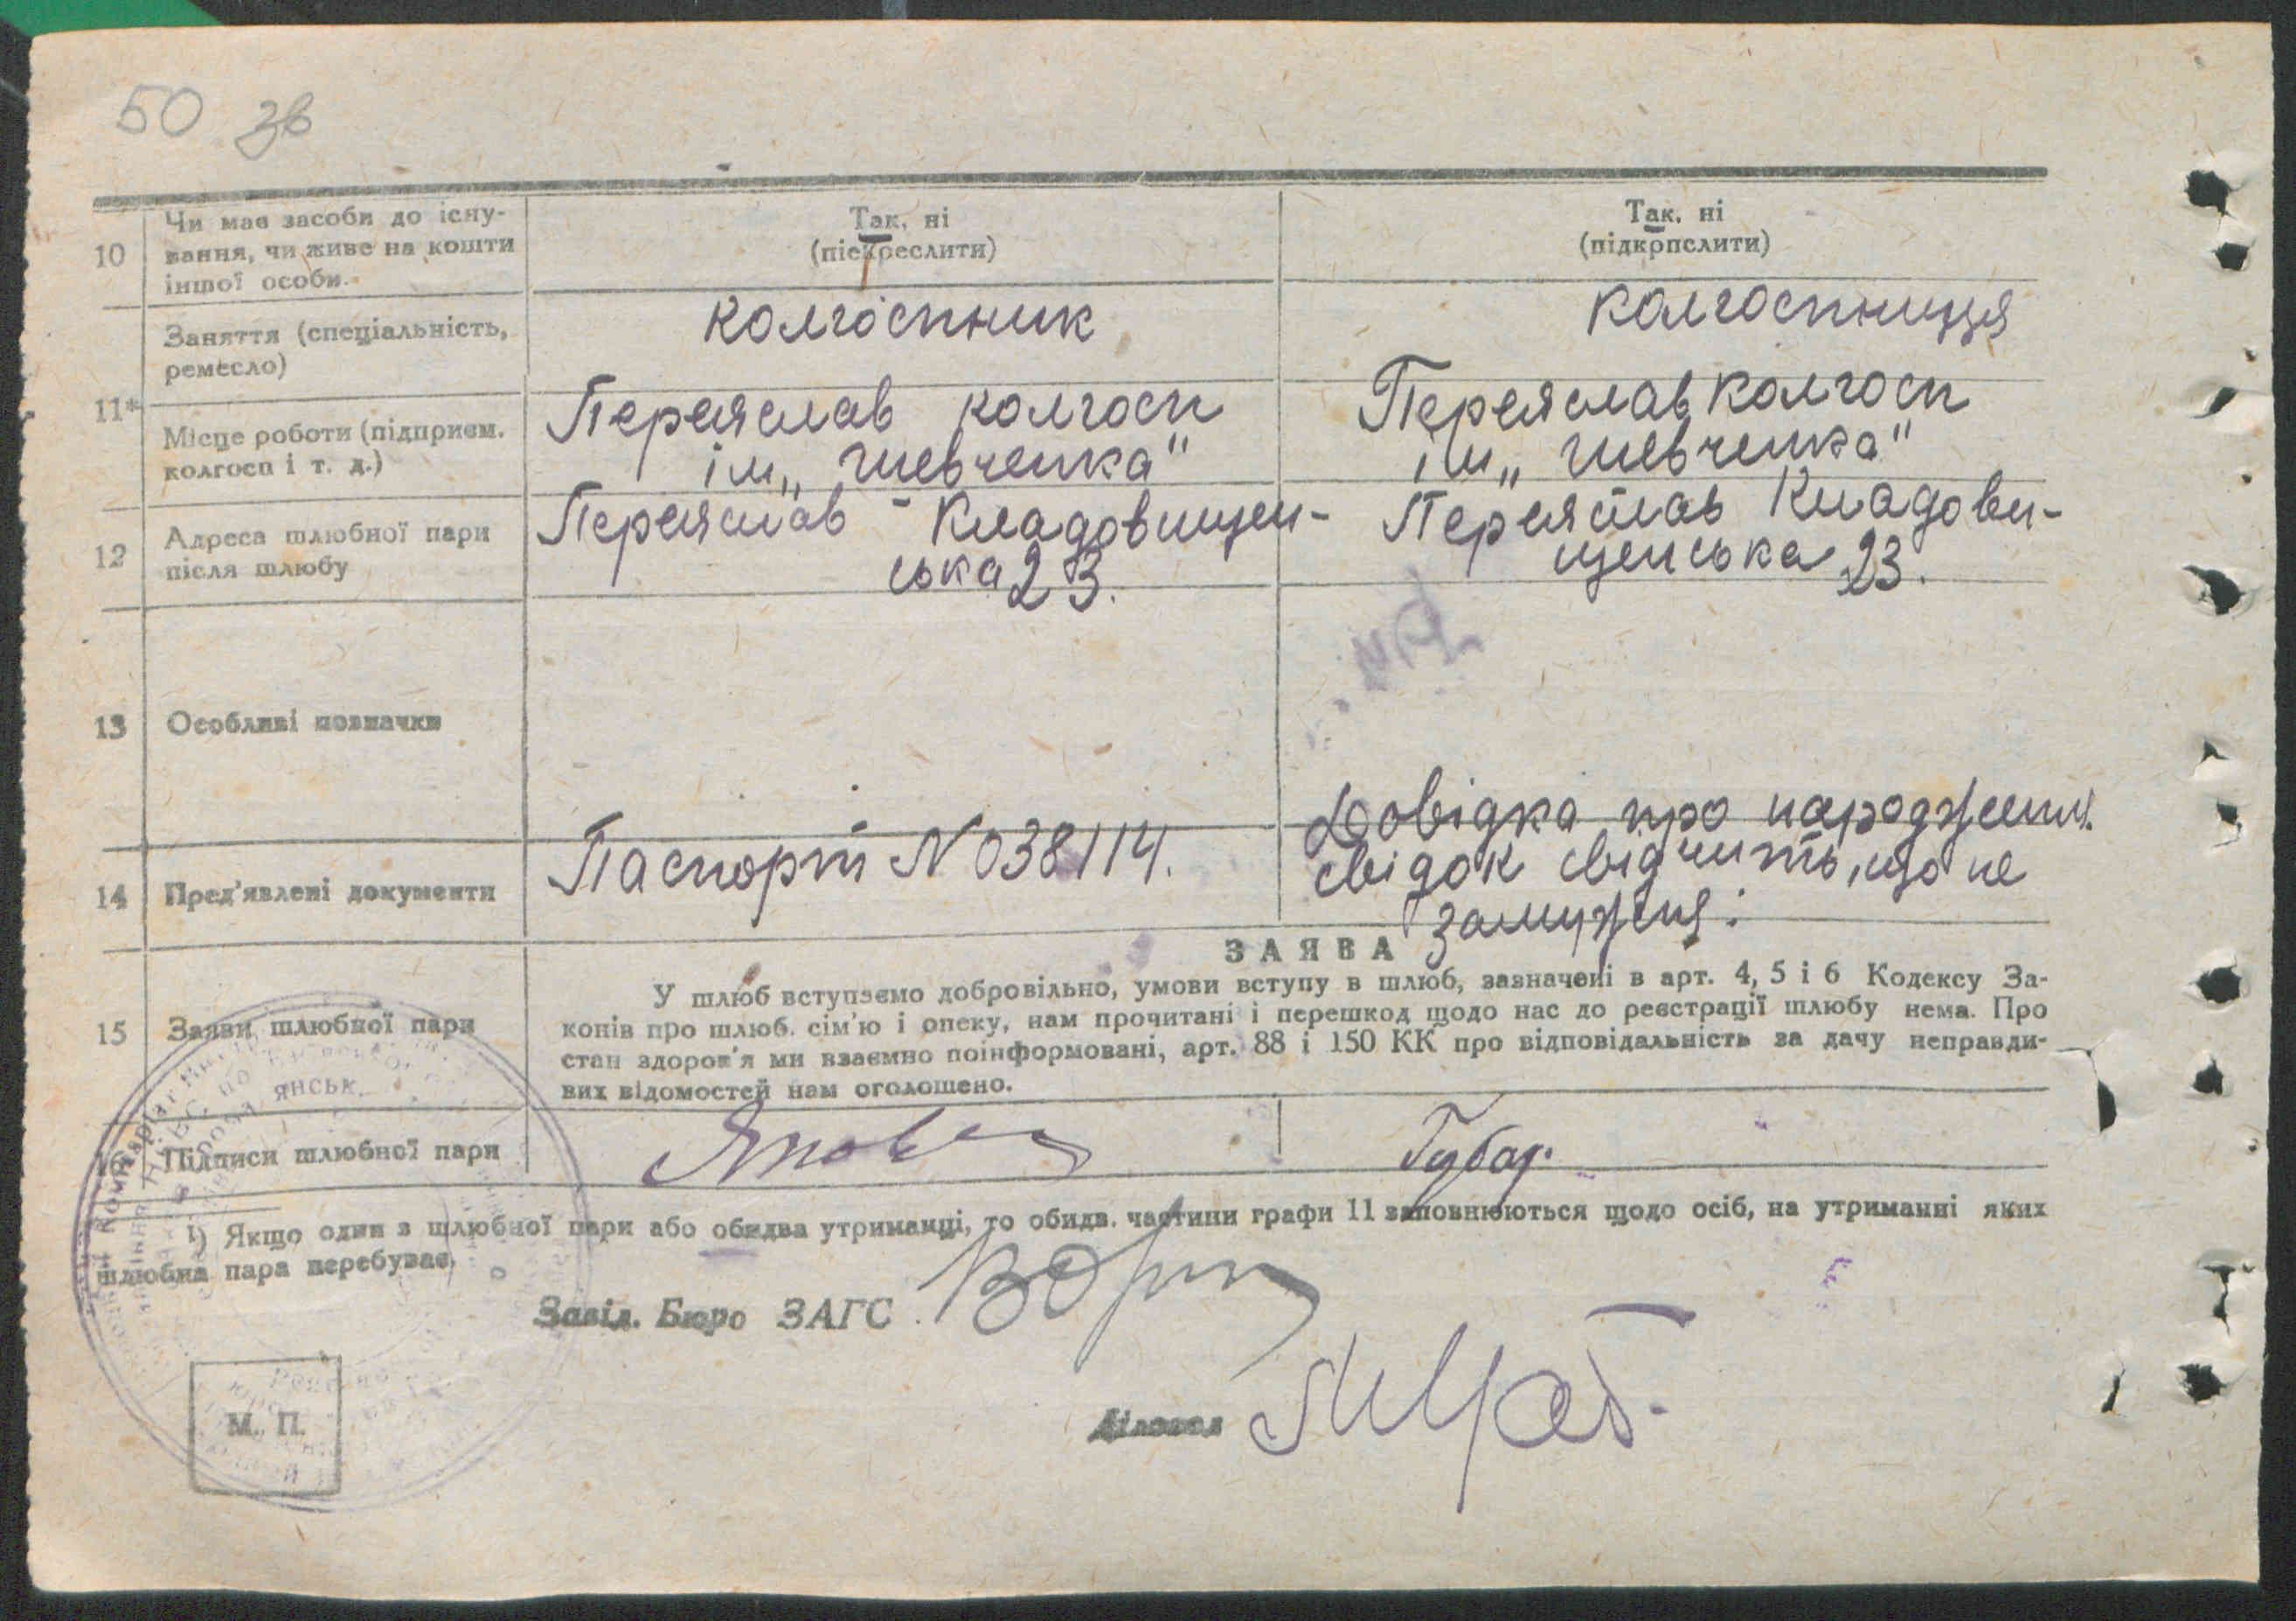 50 зв
10 Чи має засоби до існу-
вання, чи живе на кошти
іншої особи.
Так, ні
(підкреслити)
Так, ні
(підкрпслити)
11* Заняття (спеціальність,
ремесло)
колгоспник
колгоспниця
Місце роботи (підприєм.
колгосп і т. д.)
Переяслав колгосп
ім „Шевченка"
Переяслав колгосп
ім „Шевченка"
12 Адреса шлюбної пари
після шлюбу
Переяслав Кладовищен-
ська 23.
Переяслав Кладови-
щенська 23.
13 Особливі позначки
14 Пред'явлені документи
Паспорт N 038114.
Довідка про народження.
свідок свідчить, що не
замужня.
15 Заяви шлюбної пари
ЗАЯВА
У шлюб вступаємо добровільно, умови вступу в шлюб, зазначені в арт. 4, 5 і 6 Кодексу За-
конів про шлюб. сім'ю і опеку, нам прочитані і перешкод щодо нас до реєстрації шлюбу нема. Про
стан здоров'я ми взаємно поінформовані, арт. 88 і 150 КК про відповідальність за дачу неправди-
вих відомостей нам оголошено.
16 Підписи шлюбної пари
Губар.
¹) Якщо один з шлюбної пари або обидва утриманці, то обидв. частини графи 11 заповнюються щодо осіб, на утриманні яких
шлюбна пара перебуває.
Завід. Бюро ЗАГС
Діловод
М. П.